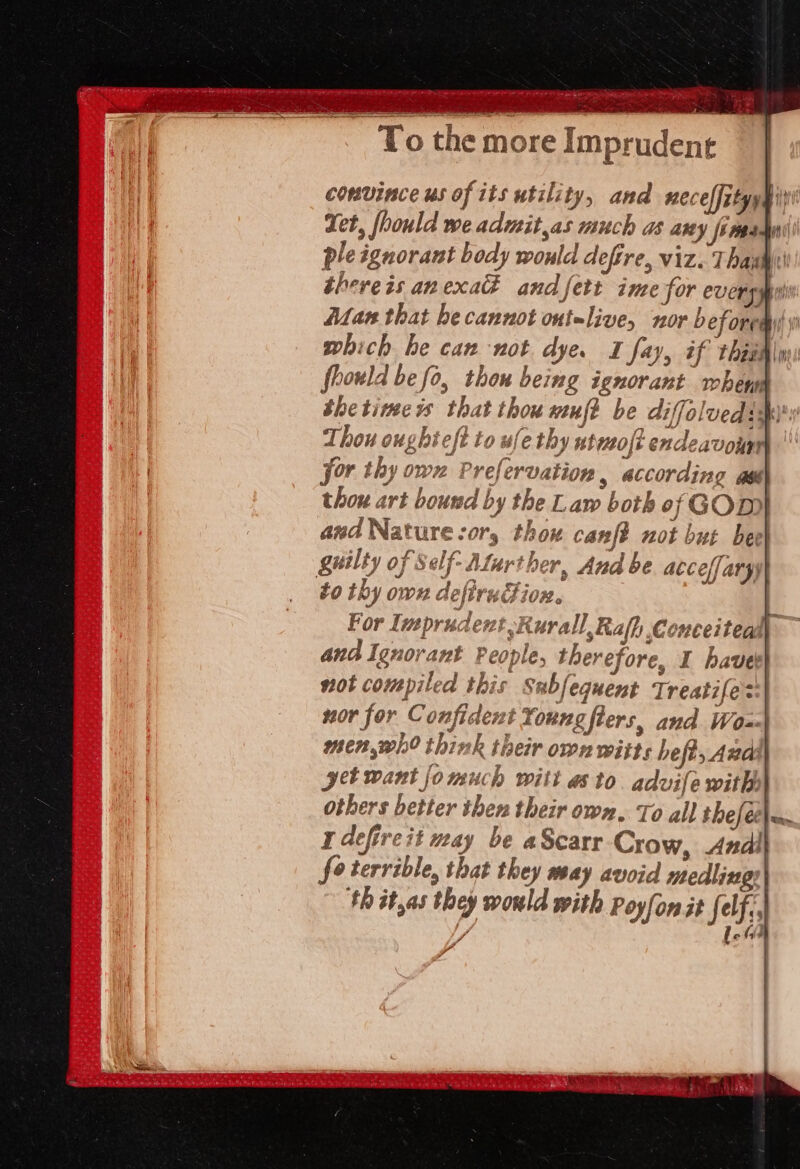 To the more Imprudent
convince us of its utility, and neceſſity,
Yet, ſhould we admit, as much as any ſim-
ple ignorant body would deſire, viz. That
there is an exact and ſett time for every
Man that he cannot out-live, nor before
which he can not dye. I ſay, if this
ſhould be ſo, thou being ignorant when
the time is that thou muſt be diſſolved:
Thou oughteſt to uſe thy utmoſt endeavour
for thy own Preſervation, according as
thou art bound by the Law both of GOD
and Nature: or, thou canſt not but bee
guilty of Self-Murther, And be acceſſary
to thy own deſtruction.
For Imprudent, Rurall, Raſh, Conceited
and Ignorant People, therefore, I have
not compiled this Subſequent Treatiſe:
nor for Confident Youngſters, and Wo-
men, who think their own witts beſt, And
yet want ſo much witt as to adviſe with
others better then their own. To all theſe
I deſire it may be a Scarr Crow, And
ſo terrible, that they may avoid medling
th it, as they would with Poyſon it ſelf,